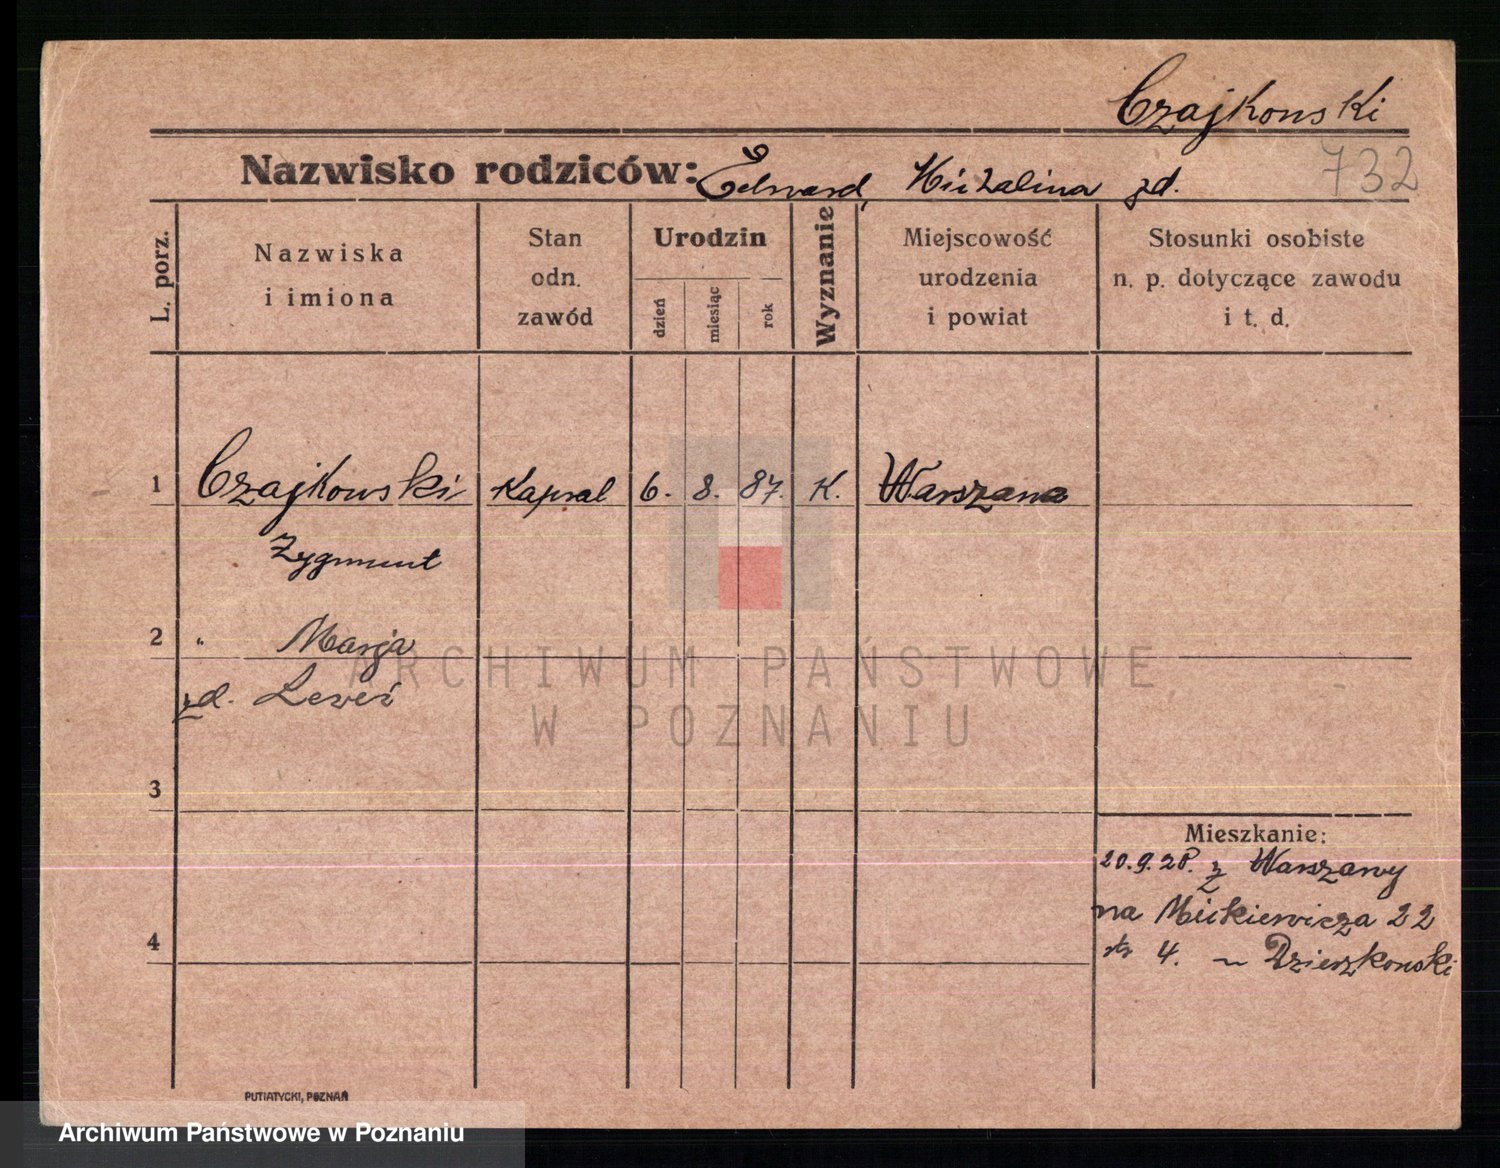 Czajkowski
Nazwisko rodziców: Edward, Michalina zd.
732
L. porz.
Nazwiska
i imiona
Stan
odn.
zawód
Urodzin
dzień
miesiąc
rok
Wyznanie
Miejscowość
urodzenia
i powiat
Stosunki osobiste
n. p. dotyczące zawodu
i t. d.
1 Czajkowski Kapral 6. 8. 87. K. Warszawa
Zygmunt
2 " Marja
zd.
3
Mieszkanie:
20.9.28. z Warszawy
na Mickiewicza 22
4
4.
PUTIATYCKI, POZNAŃ
ARCHIWUM PAŃSTWOWE
W POZNANIU
Archiwum Państwowe w Poznaniu